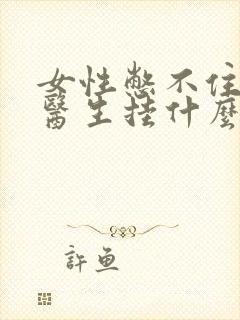 女性憋不住
醫生挂什麼
許魚